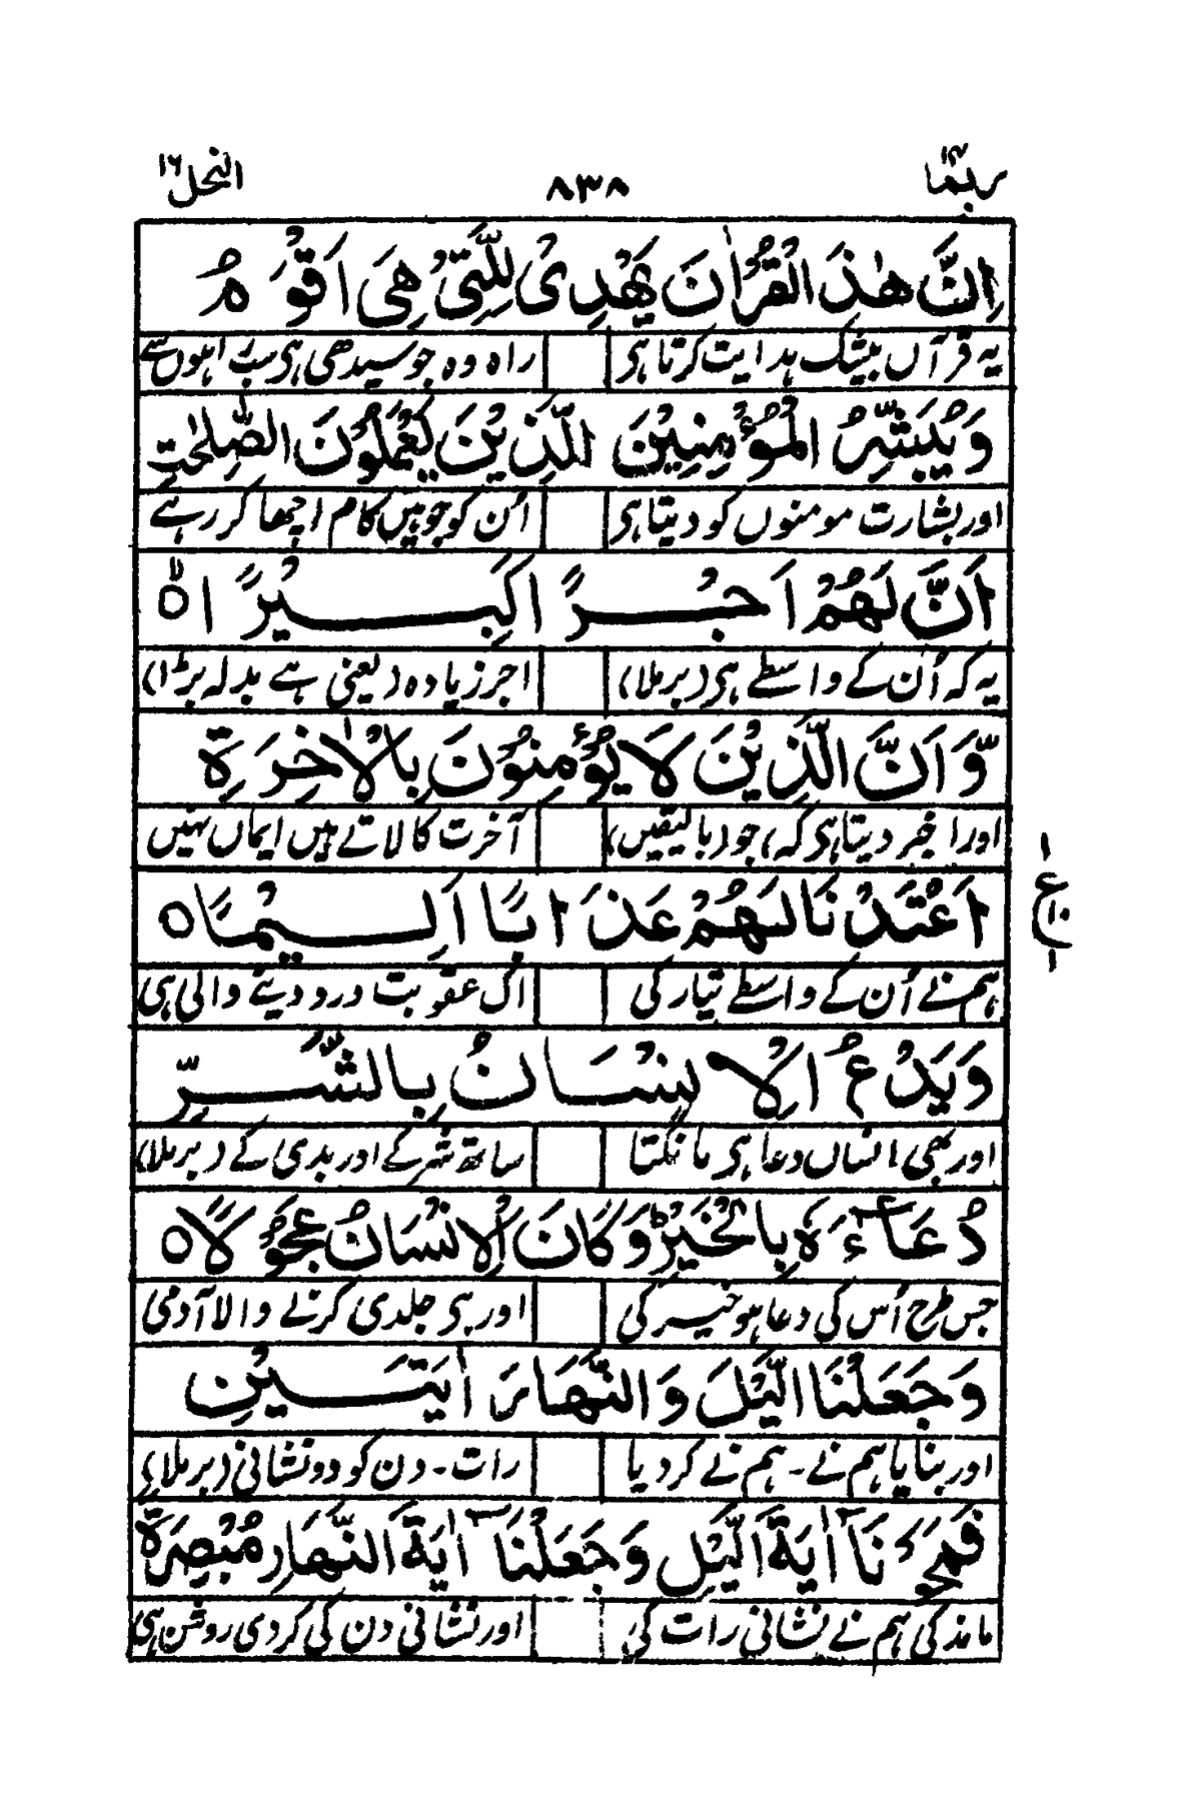 ربما ۱۴ ۸۳۸ النحل ۱۶
اِنَّ هٰذَا الْقُرْاٰنَ يَهْدِىْ لِلَّتِىْ هِىَ اَقْوَمُ
یہ قرآں بیشک ہدایت کرتا ہی راہ وہ جو سیدھی ہی سب راہوں سے
وَيُبَشِّرُ الْمُؤْمِنِيْنَ الَّذِيْنَ يَعْمَلُوْنَ الصّٰلِحٰتِ
اور بشارت مومنوں کو دیتا ہی اُن کو جو ہیں کام اچھا کر رہے
اَنَّ لَهُمْ اَجْرًا كَبِيْرًا ۙ‏
یہ کہ اُن کے واسطے ہی (برملا) اجر زیادہ (یعنی ہے بدلہ بڑا)
وَّاَنَّ الَّذِيْنَ لَا يُؤْمِنُوْنَ بِالْاٰخِرَةِ
اور اخبر دیتا ہی کہ) جو (بالیقیں) آخرت کا لاتے ہیں ایماں نہیں
اَعْتَدْنَا لَهُمْ عَذَابًا اَلِيْمًا ۝
ہم نے اُن کے واسطے تیار کی اک عقوبت درد دینے والی ہی
وَيَدْعُ الْاِنْسَانُ بِالشَّرِّ
اور بھی انساں دعا ہی مانگتا ساتھ شر کے اور بدی کے (برملا)
دُعَآءَهٗ بِالْخَيْرِ ؕ وَكَانَ الْاِنْسَانُ عَجُوْلًا ۝
جس طرح اُس کی دعا ہو خیر کی اور ہی جلدی کرنے والا آدمی
وَجَعَلْنَا الَّيْلَ وَالنَّهَارَ اٰيَتَيْنِ
اور بنایا ہم نے۔ ہم نے کر دیا رات۔ دن کو دو نشانی (برملا)
فَمَحَوْنَآ اٰيَةَ الَّيْلِ وَجَعَلْنَآ اٰيَةَ النَّهَارِ مُبْصِرَةً
ماند کی ہم نے نشانی رات کی اور نشانی دن کی کر دی روشن ہی
۱
ع
۱۰
۱